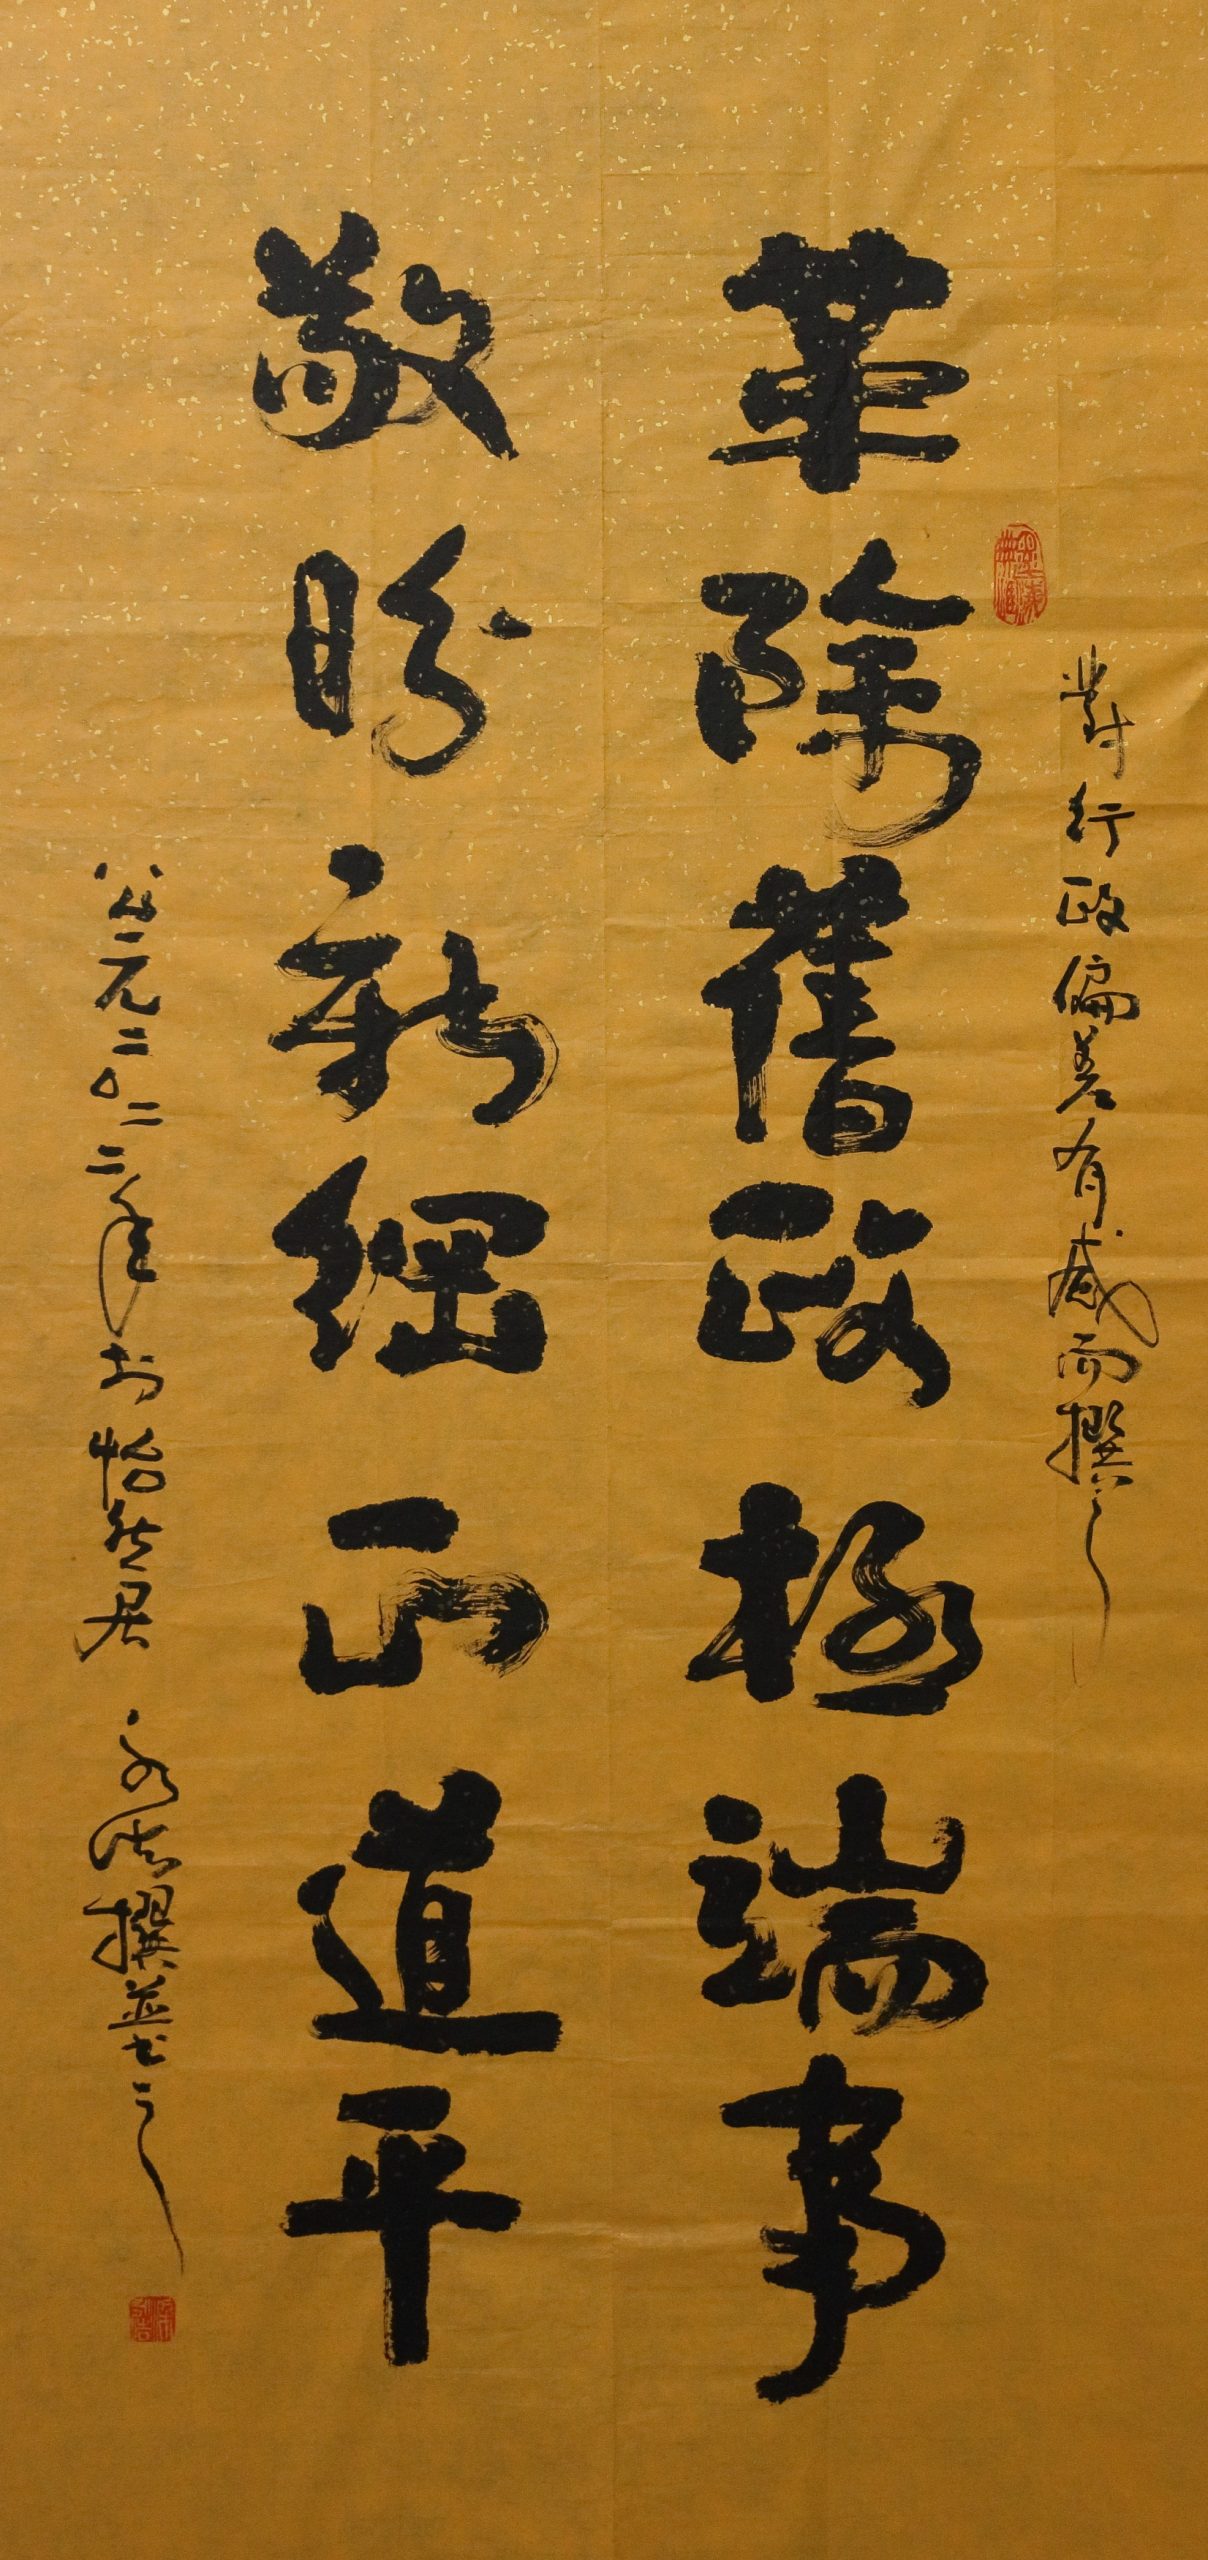 對行政偏差有感而撰之
革除舊政極端事
敬盼新綱正道平
公元二〇二二年於怡然居 永浩撰並書之